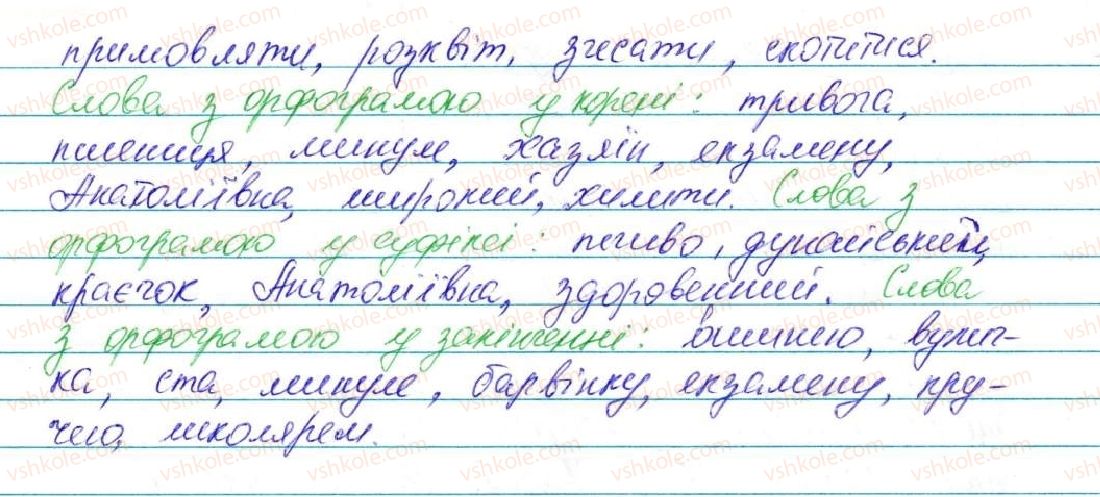 примовляти, розквіт, зчесати, скотитися.
Слова з орфограмою у корені: тривога,
пшениця, минуле, хазяїн, екзамену,
Анатоліївна, широкий, хилити. Слова з
орфограмою у суфіксі: печиво, дунайський,
краєчок, Анатоліївна, здоровенний. Слова
з орфограмою у закінченні: вишнею, вулич-
ка, ста, минуле, барвінку, екзамену, кру-
чею, школярем.